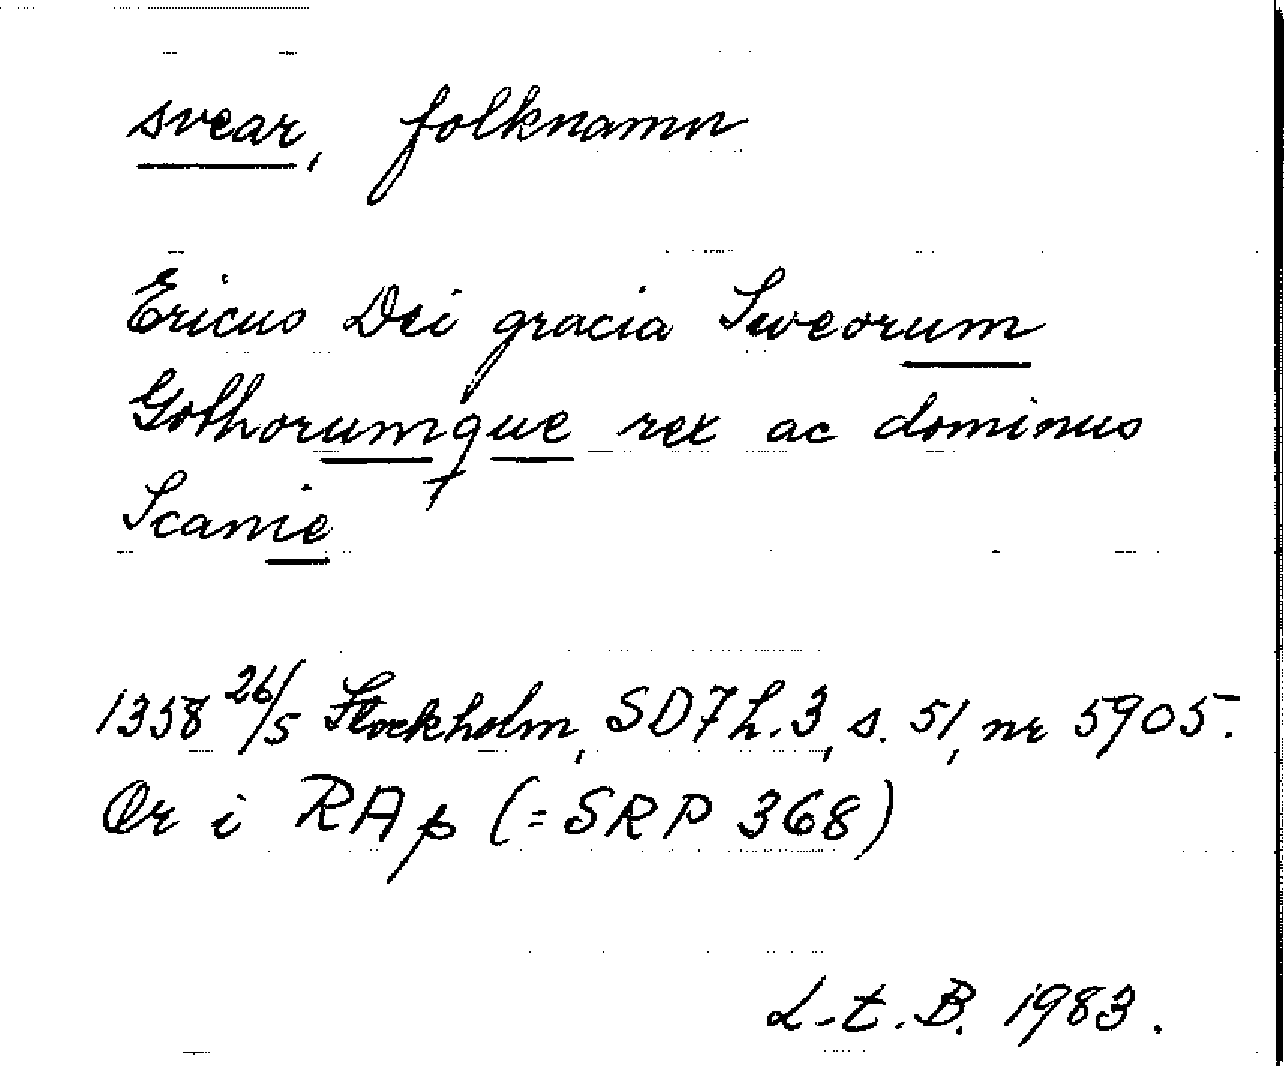 svear, folknamn
Ericus Dei gracia Sweorum
Gothorumque rex ac dominus
Scanie
1358 26/5 Stockholm, SD7 h. 3, s. 51, nr 5905.
Or i RAp (= SRP 368)
L-t. B. 1983.